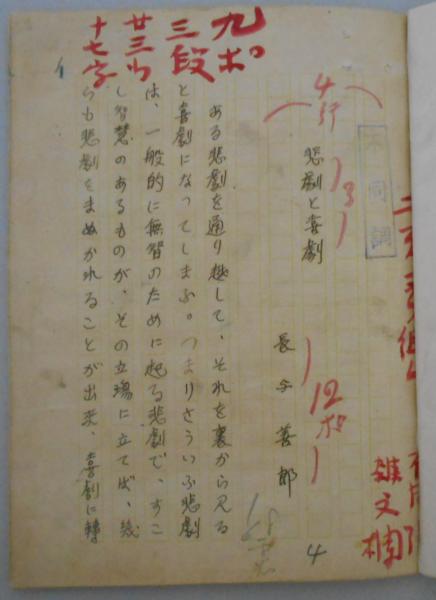 不同調
4行
悲劇と喜劇
長与善郎
12ポ
雑文欄
ある悲劇を通り越して、それを裏から見る
と喜劇になつてしまふ。つまりさういふ悲劇
は、一般的に無智のために起る悲劇で、すこ
し智慧のあるものが、その立場に立てば、幾
らも悲劇をまぬかれることが出来、喜劇に轉
九ポ。
三段
廿三行
十七字
4